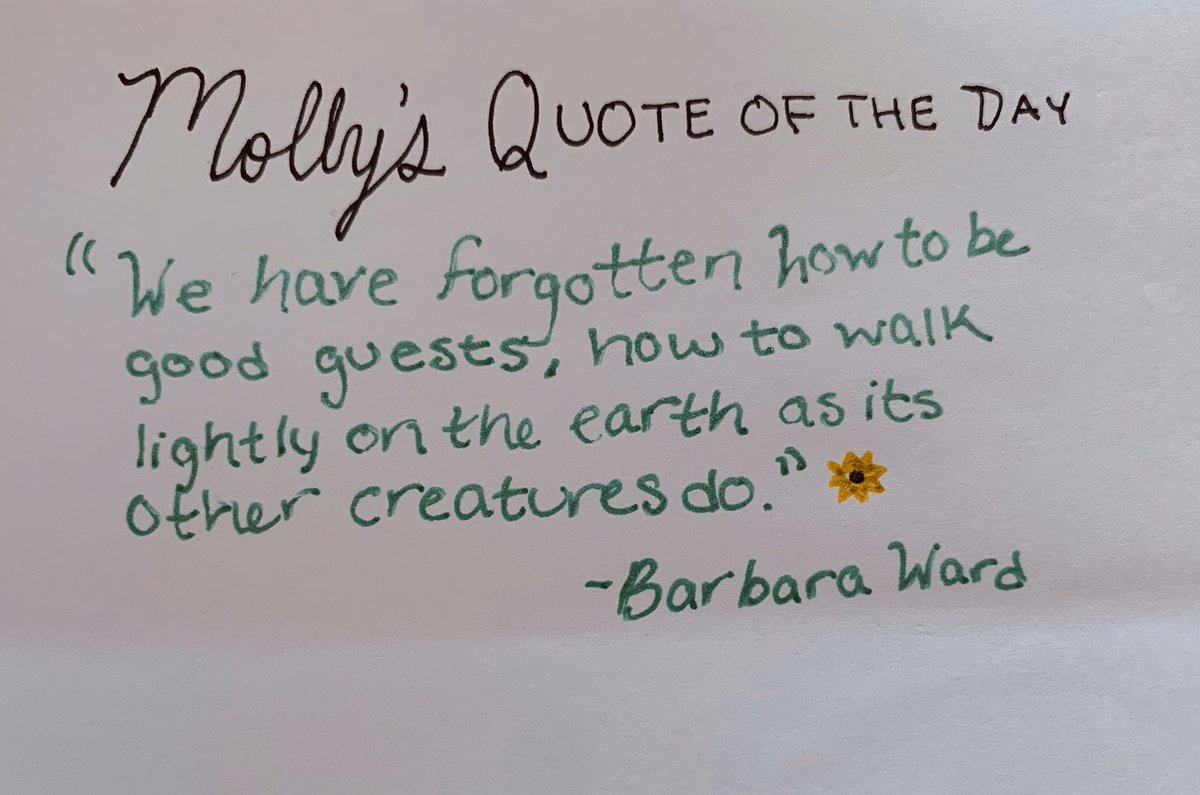 Molly's QUOTE OF THE DAY
"We have forgotten how to be
good guests, how to walk
lightly on the earth as its
other creatures do."
~Barbara Ward